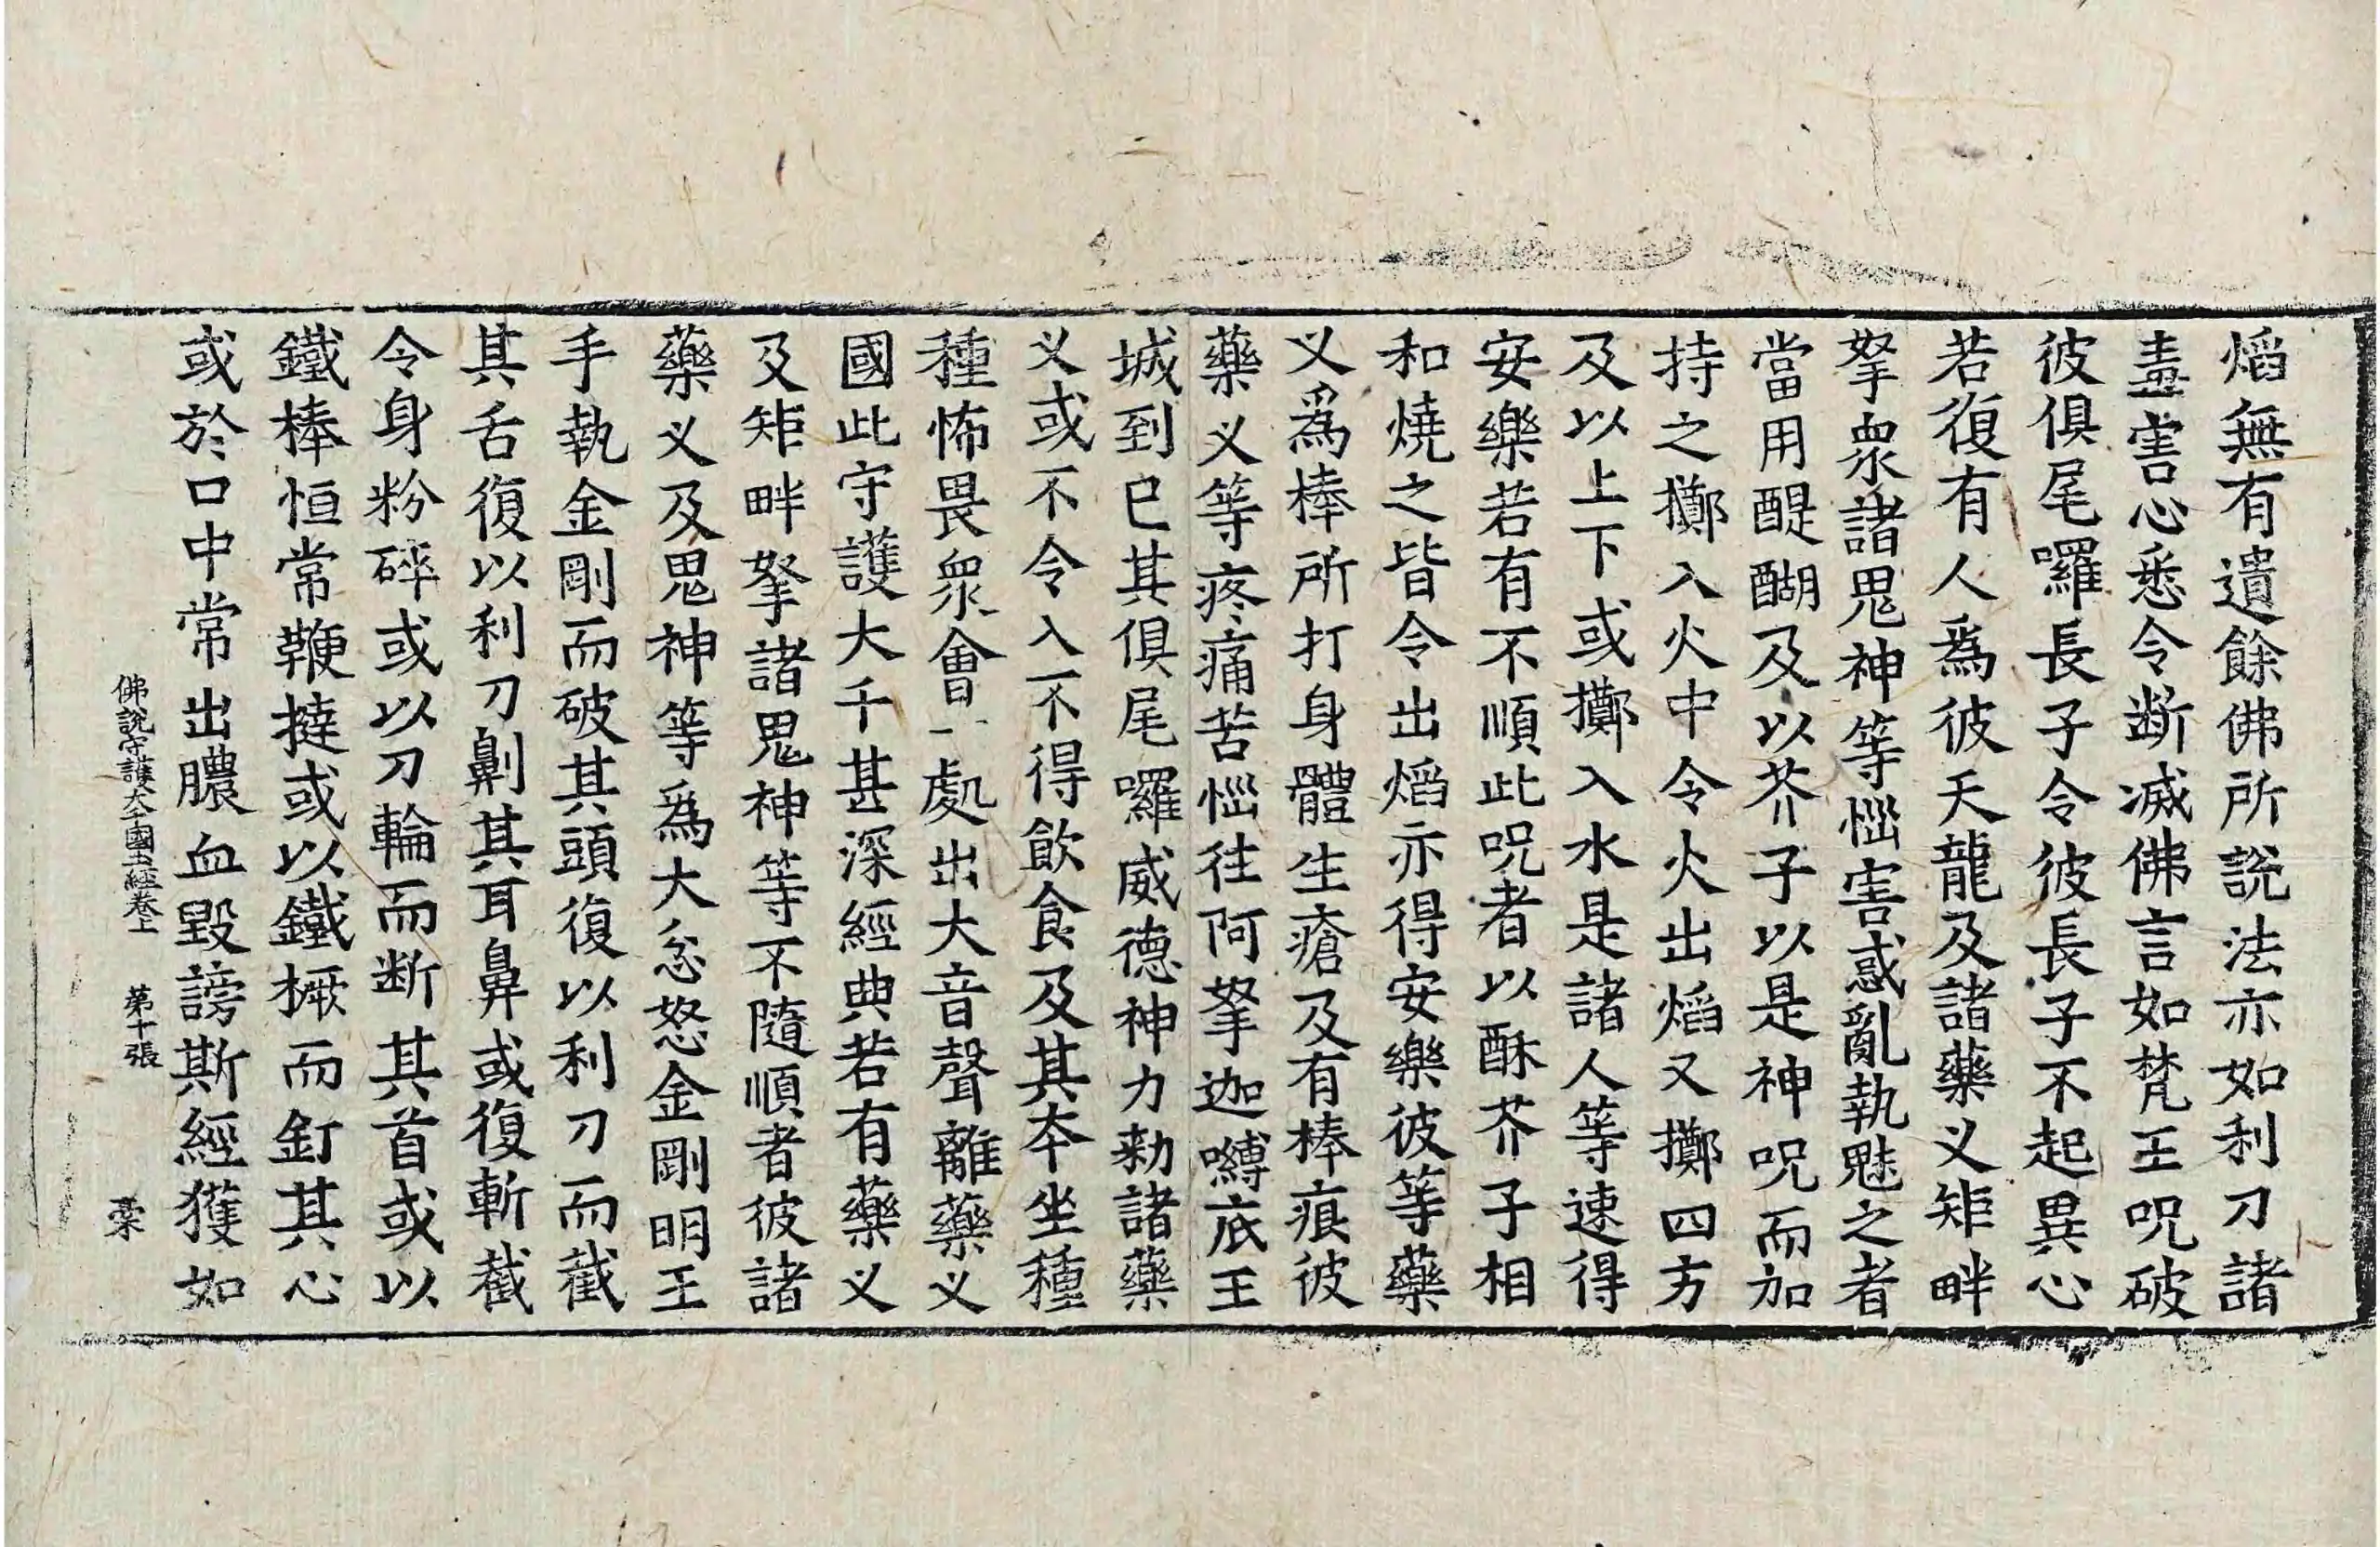 熖無有遺餘佛所說法亦如利刀諸
盡害心悉令断滅佛言如梵王呪破
彼俱尾囉長子令彼長子不起異心
若復有人爲彼天龍及諸藥义矩畔
拏衆諸鬼神等惱害惑亂執魅之者
當用醍醐及以芥子以是神呪而加
持之擲入火中令火出熖又擲四方
及以上下或擲入水是諸人等速得
安樂若有不順此呪者以酥芥子相
和燒之皆令出熖亦得安樂彼等藥
义爲棒所打身體生瘡及有棒痕彼
藥义等疼痛苦惱往阿拏迦嚩底王
城到已其俱尾囉威德神力勑諸藥
义或不令入不得飲食及其夲坐種
種怖畏衆會一處出大音聲離藥义
國此守護大千甚深經典若有藥义
及矩畔拏諸鬼神等不隨順者彼諸
藥义及鬼神等爲大忿怒金剛明王
手執金剛而破其頭復以利刀而截
其舌復以利刀劓其耳鼻或復斬截
令身粉碎或以刀輪而断其首或以
鐵棒恒常鞭撻或以鐵橛而釘其心
或於口中常出膿血毀謗斯經獲如
佛說守護大千國土經卷上 苐十張 槀